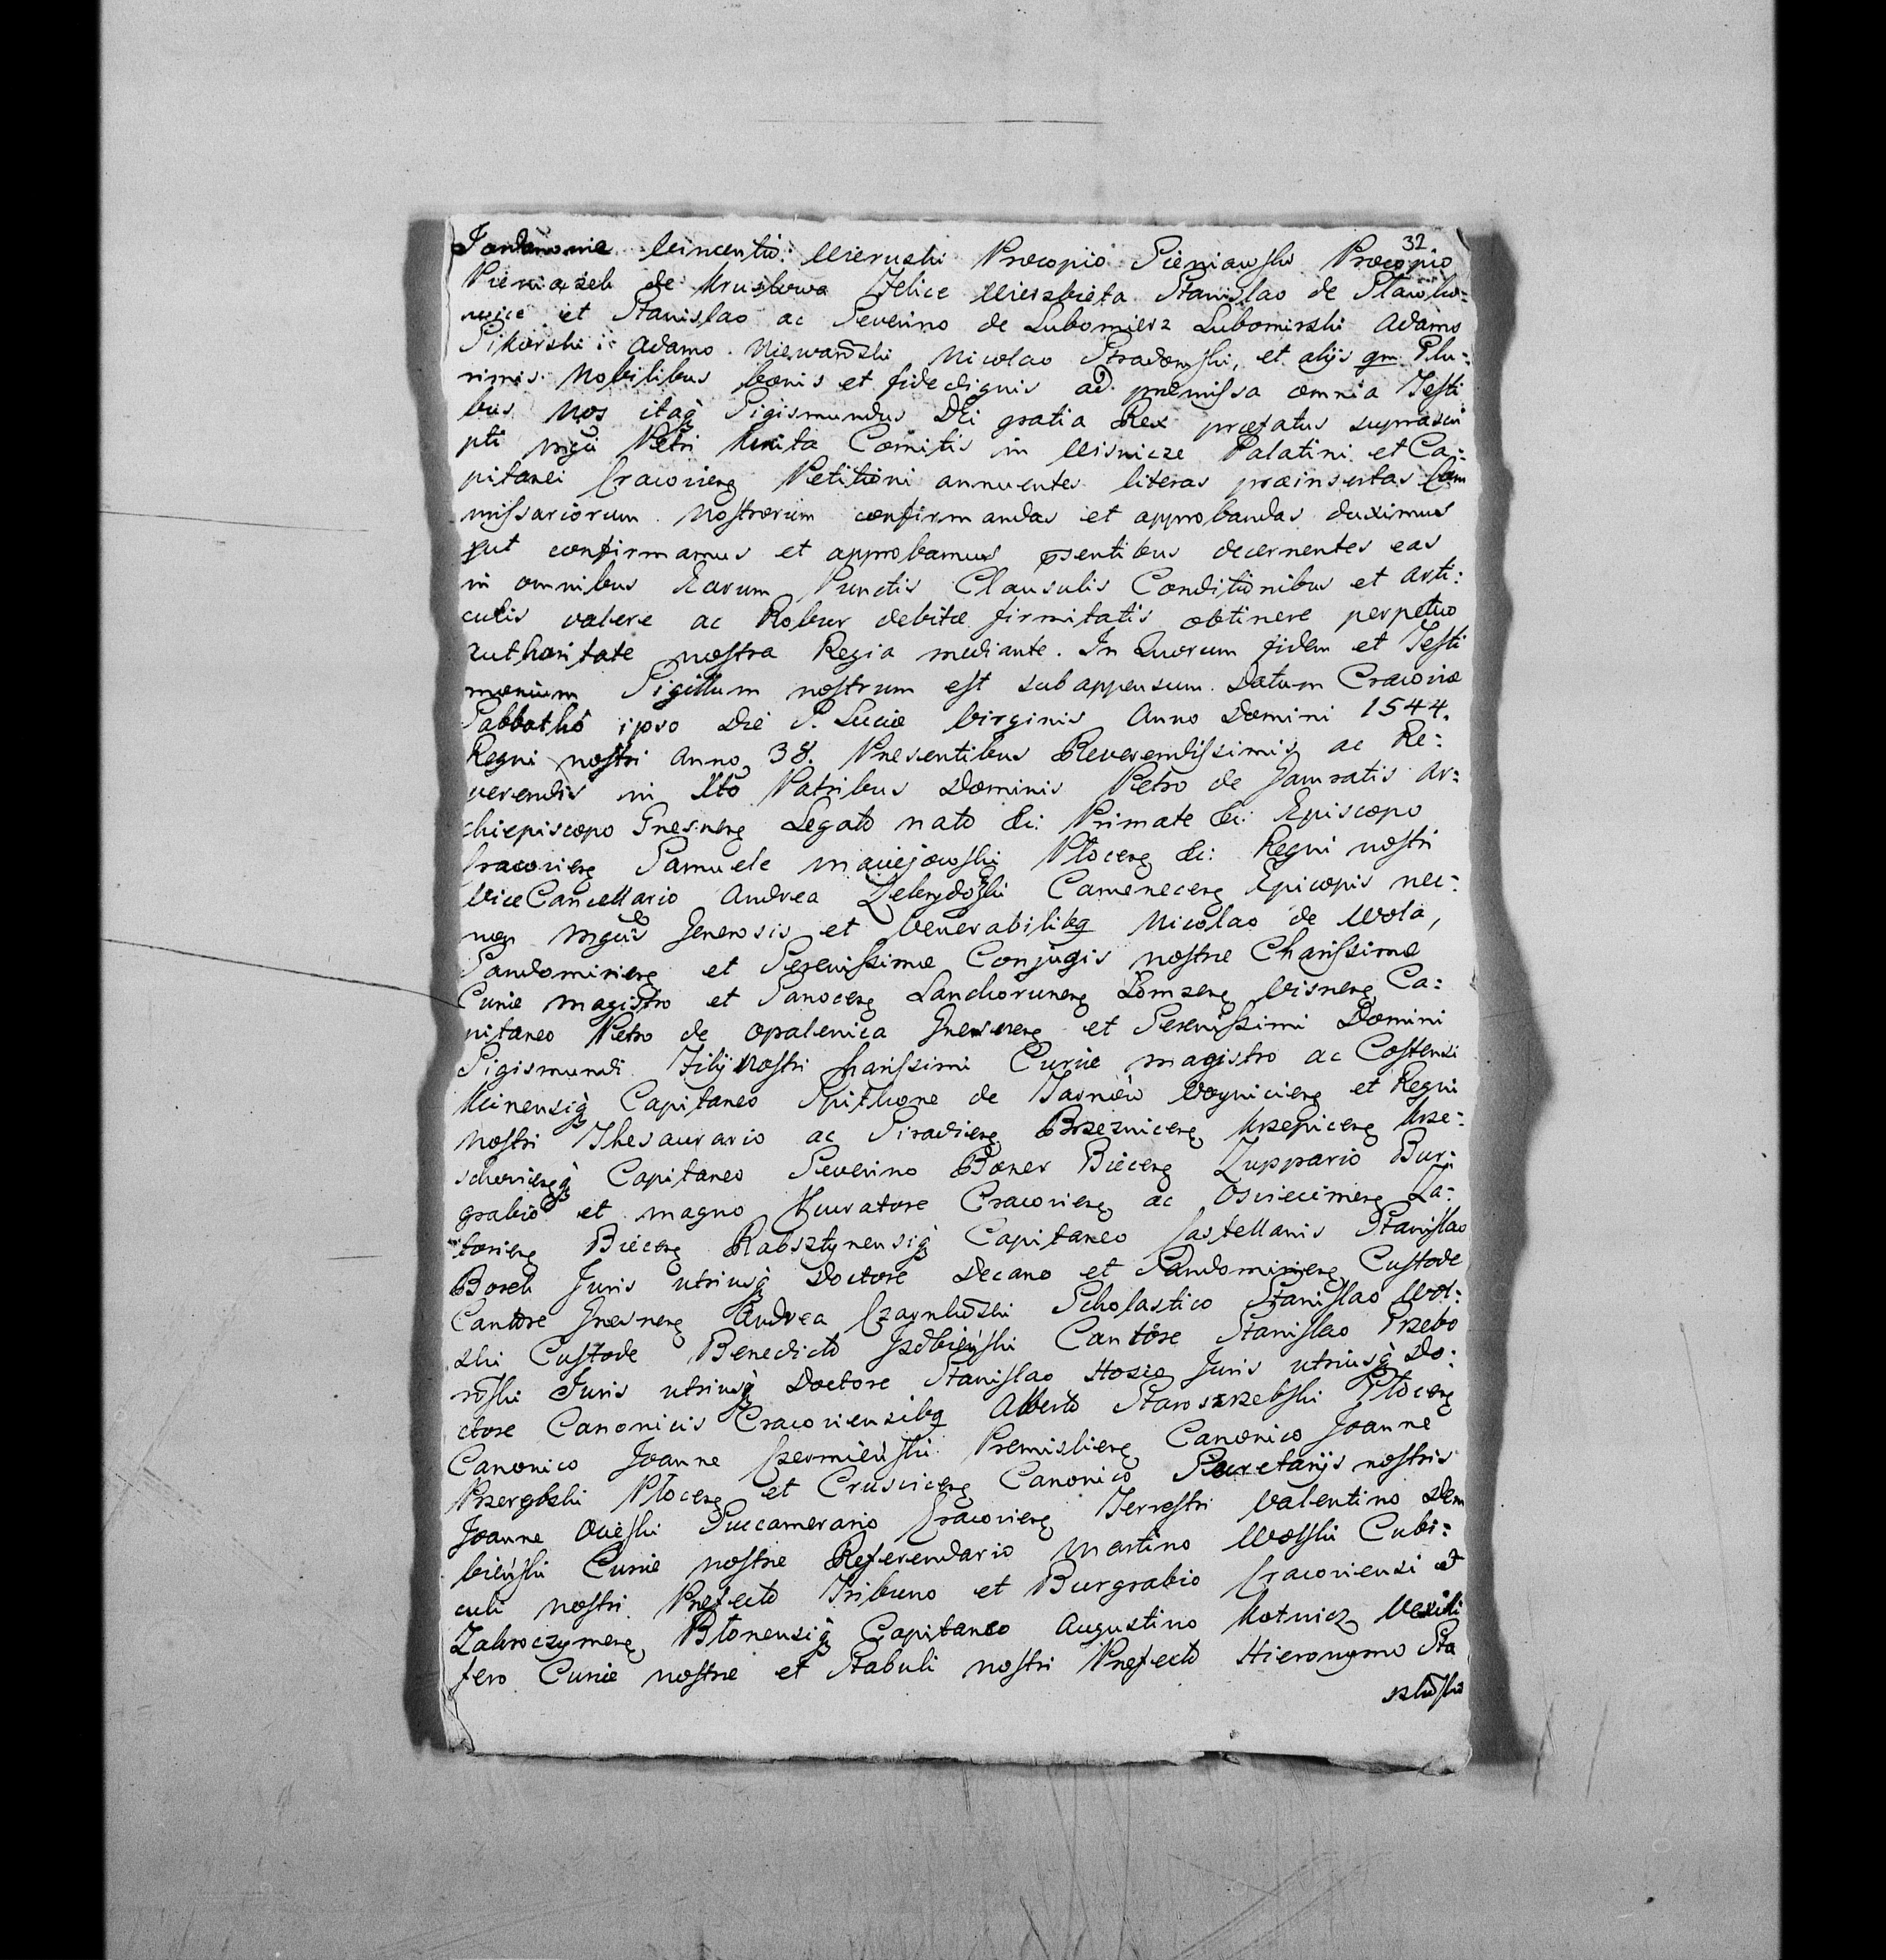 32
Vincentio Wieruski Procopio Sieniawski Procopio
Pieniążek de Kruzlowa Felice Wierzbieta Stanislao de Slawko:
wice et Stanislao ac Severino de Lubomierz Lubomirski Adamo
Sikorski Adamo Niewardski Nicolao Stradomski, et alijs qm Plu:
rimis Nobilibus bonis et fide dignis ad premissa omnia Testi
bus. Nos itaq Sigismundus Dei gratia Rex præfatus suprascri
pti mgci Petri Kmita Comitis in Wisnicze Palatini et Ca:
pitanei Cracovieng Petitioni annuentes literas præinsertas Com
missariorum Nostrorum confirmandas et approbandas duximus
put confirmamus et approbamus psentibus decernentes eas
in omnibus Earum Punctis Clausulis Conditionibus et Arti:
culis valere ac Robur debitæ firmitatis obtinere perpetuo
Authoritate nostra Regia mediante. In Quorum fidem et Testi
monium Sigillum nostrum est subappensum. Datum Cracoviæ
Sabbatho ipso Die S. Luciæ Virginis Anno Domini 1544.
Regni nostri Anno 38. Presentibus Reverendissimis ac Re:
verendis in Xto Patribus Dominis Petro de Gamratis Ar:
chiepiscopo Gnesneng Legato nato &c: Primate &c: Episcopo
Cracovieng Samuele Maciejowski Ploceng &c: Regni nostri
ViceCancellario Andrea Zebrydoski Cameneceng Epicopis nec:
non Mgcis Generosis et Venerabilibq Nicolao de Wola,
Sandomirieng et Serenissimæ Conjugis nostræ Charissimæ
Curie Magistro et Sanoceng Lanchoruneng Lomzeng Visneng Ca:
pitaneo Petro de Opalenica Gnesneng et Serenissimi Domini
Sigismundi Filij Nostri charissimi Curie Magistro ac Costensi
Capitaneo Spithone de Tarnow Voynicieng et Regni
Nostri Thesaurario ac Siradieng Brzezniceng Krzepiceng Krze:
schoviengq Capitaneo Severino Boner Bieceng Zuppario Bur:
grabio et magno Procuratore Cracovieng ac Osviecimeng Za:
torieng Bieceng Rabsztynensiq Capitaneo Castellanis Stanislao
Borek Juris utriusq Doctore Decano et Sandomirieng Custode
Cantore Gnesneng Andrea Czarnkoski Scholastico Stanislao Wol:
ski Custode Benedicto Izdbieński Cantore Stanislao Przebo
roski Juris utriusq Doctore Stanislao Hosio Juris utriusq Do:
ctore Canonicis Cracoviensibq Alberto Starozrzebski Ploceng
Canonico Joanne Przemislieng Canonico Joanne
Przerębski Ploceng et Crusviceng Canonico Secretarijs nostris
Joanne Ocieski Succamerario Cracovieng Terrestri Valentino Dem
bieński Curie nostre Referendario Martino Wolski Cubi:
culi nostri Prefecto Tribuno et Burgrabio Cracoviensi et
Zakroczymeng Blonensiq Capitaneo Augustino Kotwicz Vexilli
fero Curie nostre et Stabuli nostri Prefecto Hieronymo Sta